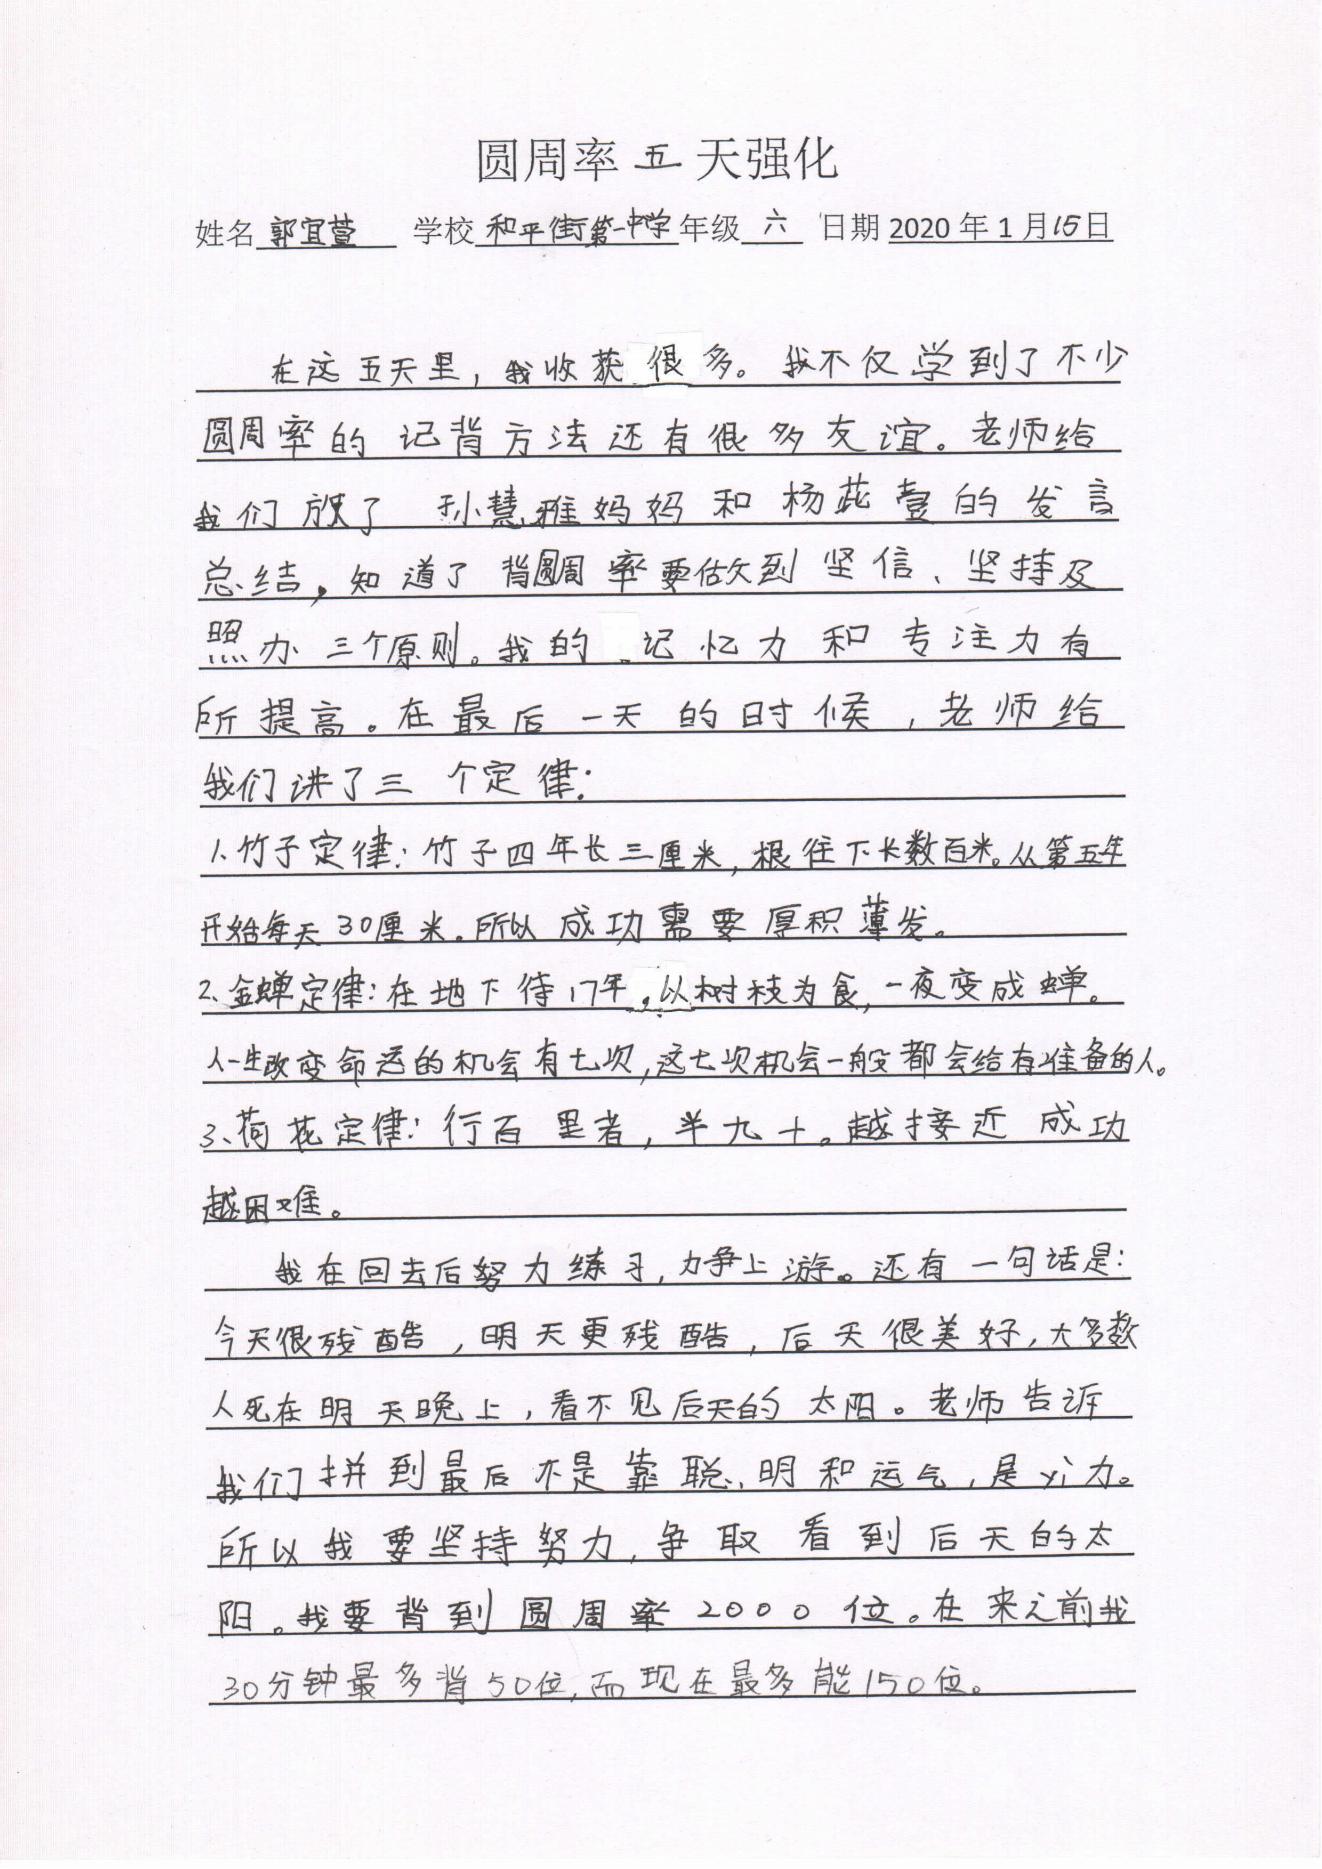 圆周率五天强化
姓名 郭宜萱 学校 和平街第一中学 年级 六 日期 2020 年 1 月 15 日
在这五天里，我收获很多。我不仅学到了不少
圆周率的记背方法还有很多友谊。老师给
我们放了孙慧雅妈妈和杨芘壹的发言
总结，知道了背圆周率要做到坚信、坚持及
照办三个原则。我的记忆力和专注力有
所提高。在最后一天的时候，老师给
我们讲了三个定律：
1.竹子定律：竹子四年长三厘米，根往下长数百米。从第五年
开始每天30厘米。所以成功需要厚积薄发。
2、金蝉定律：在地下待17年，以树枝为食，一夜变成蝉。
人一生改变命运的机会有七次，这七次机会一般都会给有准备的人。
3、荷花定律：行百里者，半九十。越接近成功
越困难。
我在回去后努力练习，力争上游。还有一句话是：
今天很残酷，明天更残酷，后天很美好，大多数
人死在明天晚上，看不见后天的太阳。老师告诉
我们拼到最后不是靠聪明和运气，是yì力。
所以我要坚持努力，争取看到后天的太
阳。我要背到圆周率2000位。在来之前我
30分钟最多背50位，而现在最多能150位。